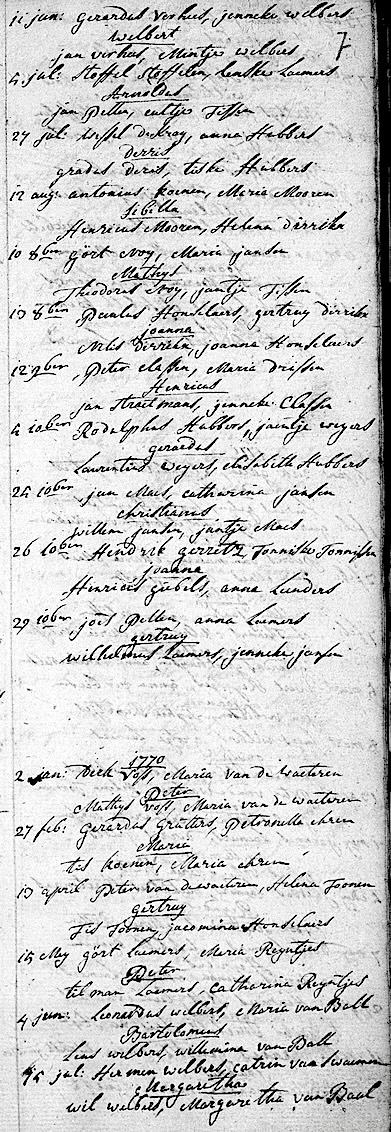 11 jun: gerardus verhus, jenneke welbers
welbert
7
jan verhus, Mintje welbers
4 jul: Stoffel Stoffelen, Laemers
Arnoldus
jan Pellen, Tissen
27 jul: anna Hubbers
Derris
gradus Deris, tiske Hubbers
12 aug: antonius koenen, Maria Mooren
Sibilla
Henricus Mooren, Helena Dirrikn
10 8ben gört Noy, Maria jansen
Mathys
Theodorus Noy, jantje Tissen
13 8ben Paulus Honselaers, gertruy Dirrikn
joanna
Dirrikn, joanna Honselaers
12 9ber Peter Classen, Maria Drissen
Henricus
jan Straetmans, jenneke Classen
4 10ben Rodolphus Hubbers, jaentje weyers
gerardus
Laurentius weyers, elisabeth Hubbers
25 10ber jan Maes, catharina jansen
christianus
willem jansen, jantje Maes
26 10ben Hendrik gerritz Tonniske Tonnissen
joanna
Henricus gübels, anna Lunders
29 10ber joes Pellen, anna Laemers
gertruy
wilhelmus Laemers, jenneke jansen
1770
2 jan: Derk Voss, Maria van de waeteren
Peter
Mathys Voss, Maria van de waeteren
27 feb: Gerardus Grüters, Petronella ehren
Maria
tis koenen, Maria ehren
13 april Peter van de waeteren, Helena Toonen
gertruy
Tis Toonen, jacomina Honselaers
15 May gört Laemers, Maria Reyntjes
Peter
tilman Laemers, catharina Reyntjes
4 jun: Leonardus welbers, Maria van Ball
Bartolomeus
Lens welbers, willemina van Ball
15 jul: Hermen welbers, catrin van
Margaretha
wil welbers, Margaretha van Baal